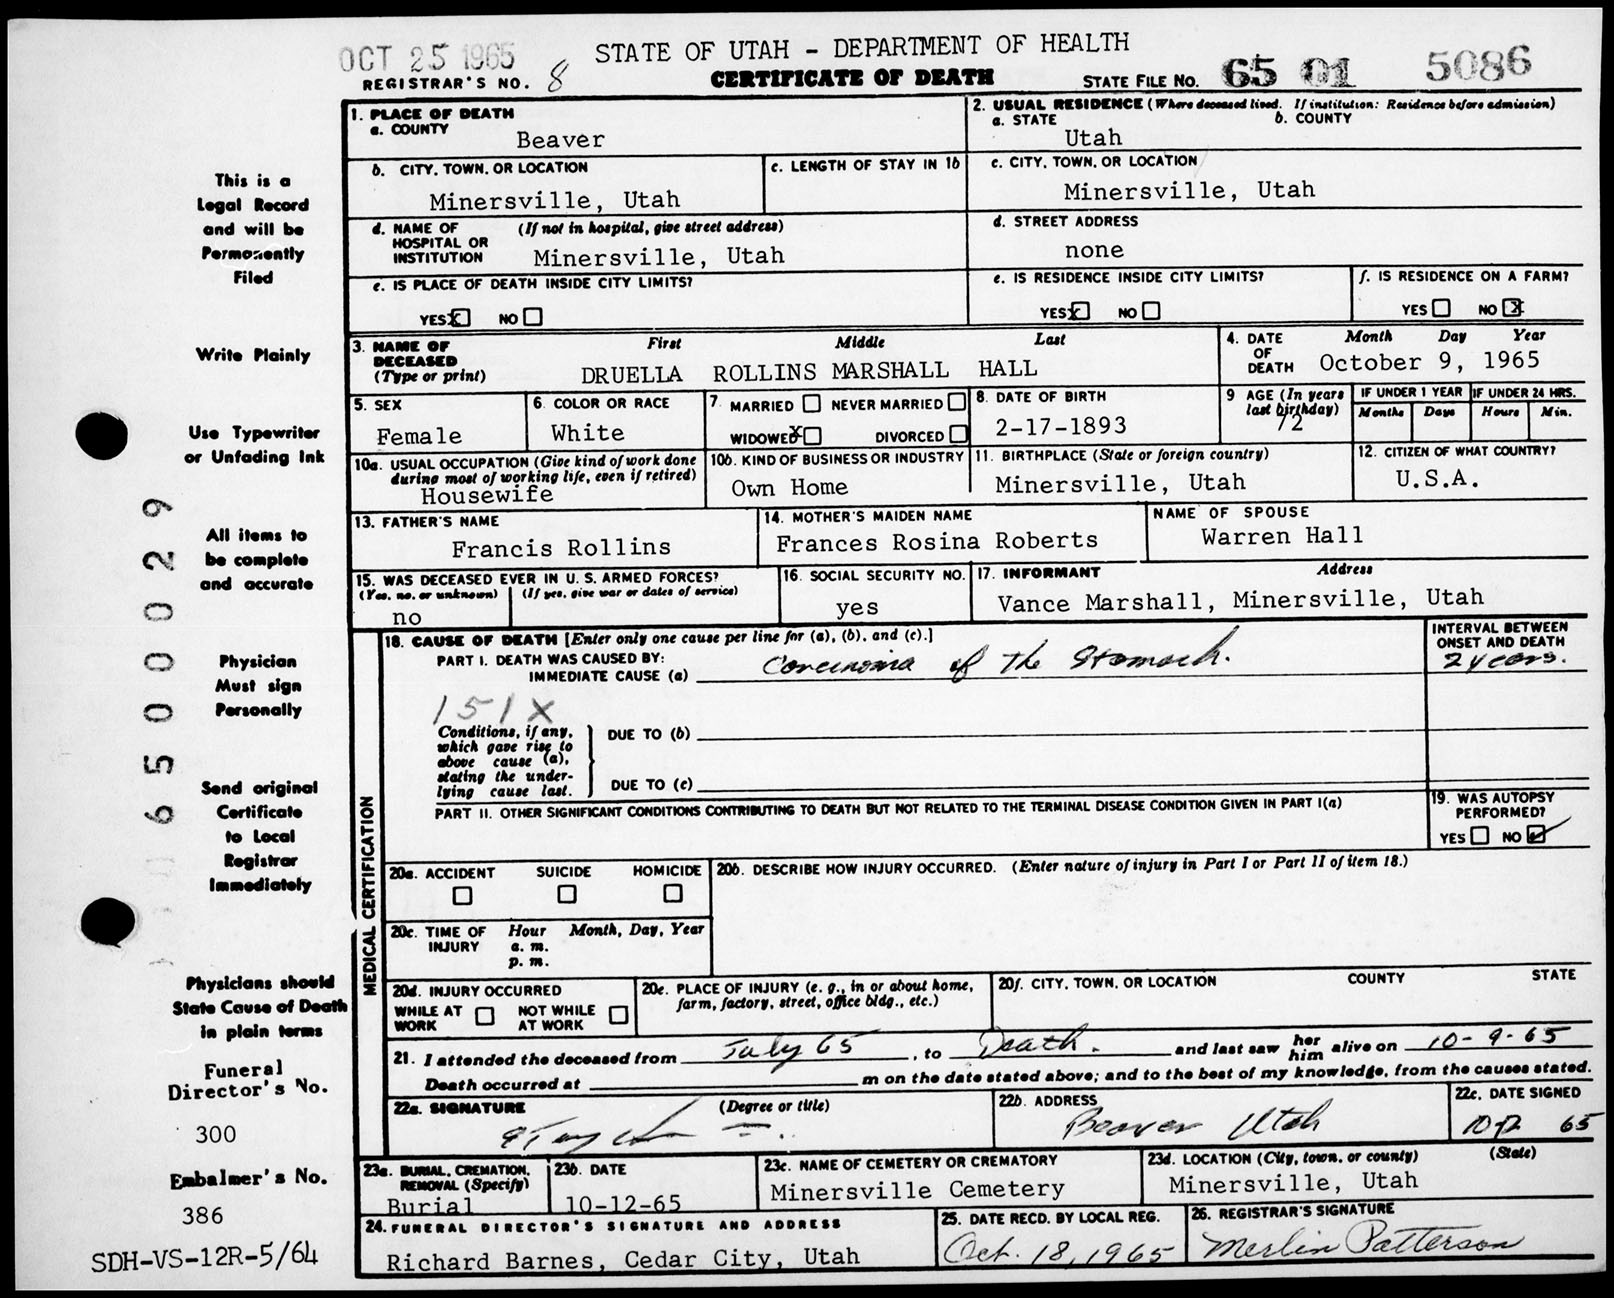 OCT 25 1965
STATE OF UTAH - DEPARTMENT OF HEALTH
REGISTRAR'S NO. 8
CERTIFICATE OF DEATH
STATE FILE NO. 65 01 5086
This is a
Legal Record
and will be
Permanently
Filed
Write Plainly
Use Typewriter
or Unfading Ink
All items to
be complete
and accurate
Physician
Must sign
Personally
Send original
Certificate
to Local
Registrar
Immediately
Physicians should
State Cause of Death
in plain terms
Funeral
Director's No.
300
Embalmer's No.
386
SDH-VS-12R-5/64
65000029
1. PLACE OF DEATH
a. COUNTY
Beaver
2. USUAL RESIDENCE (Where deceased lived. If institution: Residence before admission)
a. STATE b. COUNTY
Utah
b. CITY, TOWN, OR LOCATION
Minersville, Utah
c. LENGTH OF STAY IN 1b
c. CITY, TOWN, OR LOCATION
Minersville, Utah
d. NAME OF (If not in hospital, give street address)
HOSPITAL OR
INSTITUTION Minersville, Utah
d. STREET ADDRESS
none
e. IS PLACE OF DEATH INSIDE CITY LIMITS?
YES X NO
e. IS RESIDENCE INSIDE CITY LIMITS?
YES X NO
f. IS RESIDENCE ON A FARM?
YES NO X
3. NAME OF First Middle Last
DECEASED
(Type or print) DRUELLA ROLLINS MARSHALL HALL
4. DATE Month Day Year
OF
DEATH October 9, 1965
5. SEX
Female
6. COLOR OR RACE
White
7. MARRIED NEVER MARRIED
WIDOWED X DIVORCED
8. DATE OF BIRTH
2-17-1893
9 AGE (In years
last birthday)
72
IF UNDER 1 YEAR IF UNDER 24 HRS.
Months Days Hours Min.
10a. USUAL OCCUPATION (Give kind of work done
during most of working life, even if retired)
Housewife
10b. KIND OF BUSINESS OR INDUSTRY
Own Home
11. BIRTHPLACE (State or foreign country)
Minersville, Utah
12. CITIZEN OF WHAT COUNTRY?
U.S.A.
13. FATHER'S NAME
Francis Rollins
14. MOTHER'S MAIDEN NAME
Frances Rosina Roberts
NAME OF SPOUSE
Warren Hall
15. WAS DECEASED EVER IN U. S. ARMED FORCES?
(Yes, no, or unknown) (If yes, give war or dates of service)
no
16. SOCIAL SECURITY NO.
yes
17. INFORMANT Address
Vance Marshall, Minersville, Utah
MEDICAL CERTIFICATION
18. CAUSE OF DEATH [Enter only one cause per line for (a), (b), and (c).]
PART I. DEATH WAS CAUSED BY:
IMMEDIATE CAUSE (a) Carcinoma of the Stomach.
INTERVAL BETWEEN
ONSET AND DEATH
2 years.
151X
Conditions, if any,
which gave rise to
above cause (a),
stating the under-
lying cause last.
DUE TO (b)
DUE TO (c)
PART II. OTHER SIGNIFICANT CONDITIONS CONTRIBUTING TO DEATH BUT NOT RELATED TO THE TERMINAL DISEASE CONDITION GIVEN IN PART I(a)
19. WAS AUTOPSY
PERFORMED?
YES NO ✓
20a. ACCIDENT SUICIDE HOMICIDE
20b. DESCRIBE HOW INJURY OCCURRED. (Enter nature of injury in Part I or Part II of item 18.)
20c. TIME OF Hour Month, Day, Year
INJURY a. m.
p. m.
20d. INJURY OCCURRED
WHILE AT NOT WHILE
WORK AT WORK
20e. PLACE OF INJURY (e. g., in or about home,
farm, factory, street, office bldg., etc.)
20f. CITY, TOWN, OR LOCATION COUNTY STATE
21. I attended the deceased from July 65, to Death. and last saw her him alive on 10-9-65
Death occurred at m on the date stated above; and to the best of my knowledge, from the causes stated.
22a. SIGNATURE (Degree or title)
22b. ADDRESS
Beaver Utah
22c. DATE SIGNED
65
23a. BURIAL, CREMATION,
REMOVAL (Specify)
Burial
23b. DATE
10-12-65
23c. NAME OF CEMETERY OR CREMATORY
Minersville Cemetery
23d. LOCATION (City, town, or county) (State)
Minersville, Utah
24. FUNERAL DIRECTOR'S SIGNATURE AND ADDRESS
Richard Barnes, Cedar City, Utah
25. DATE RECD. BY LOCAL REG.
Oct. 18, 1965
26. REGISTRAR'S SIGNATURE
Merlin Patterson